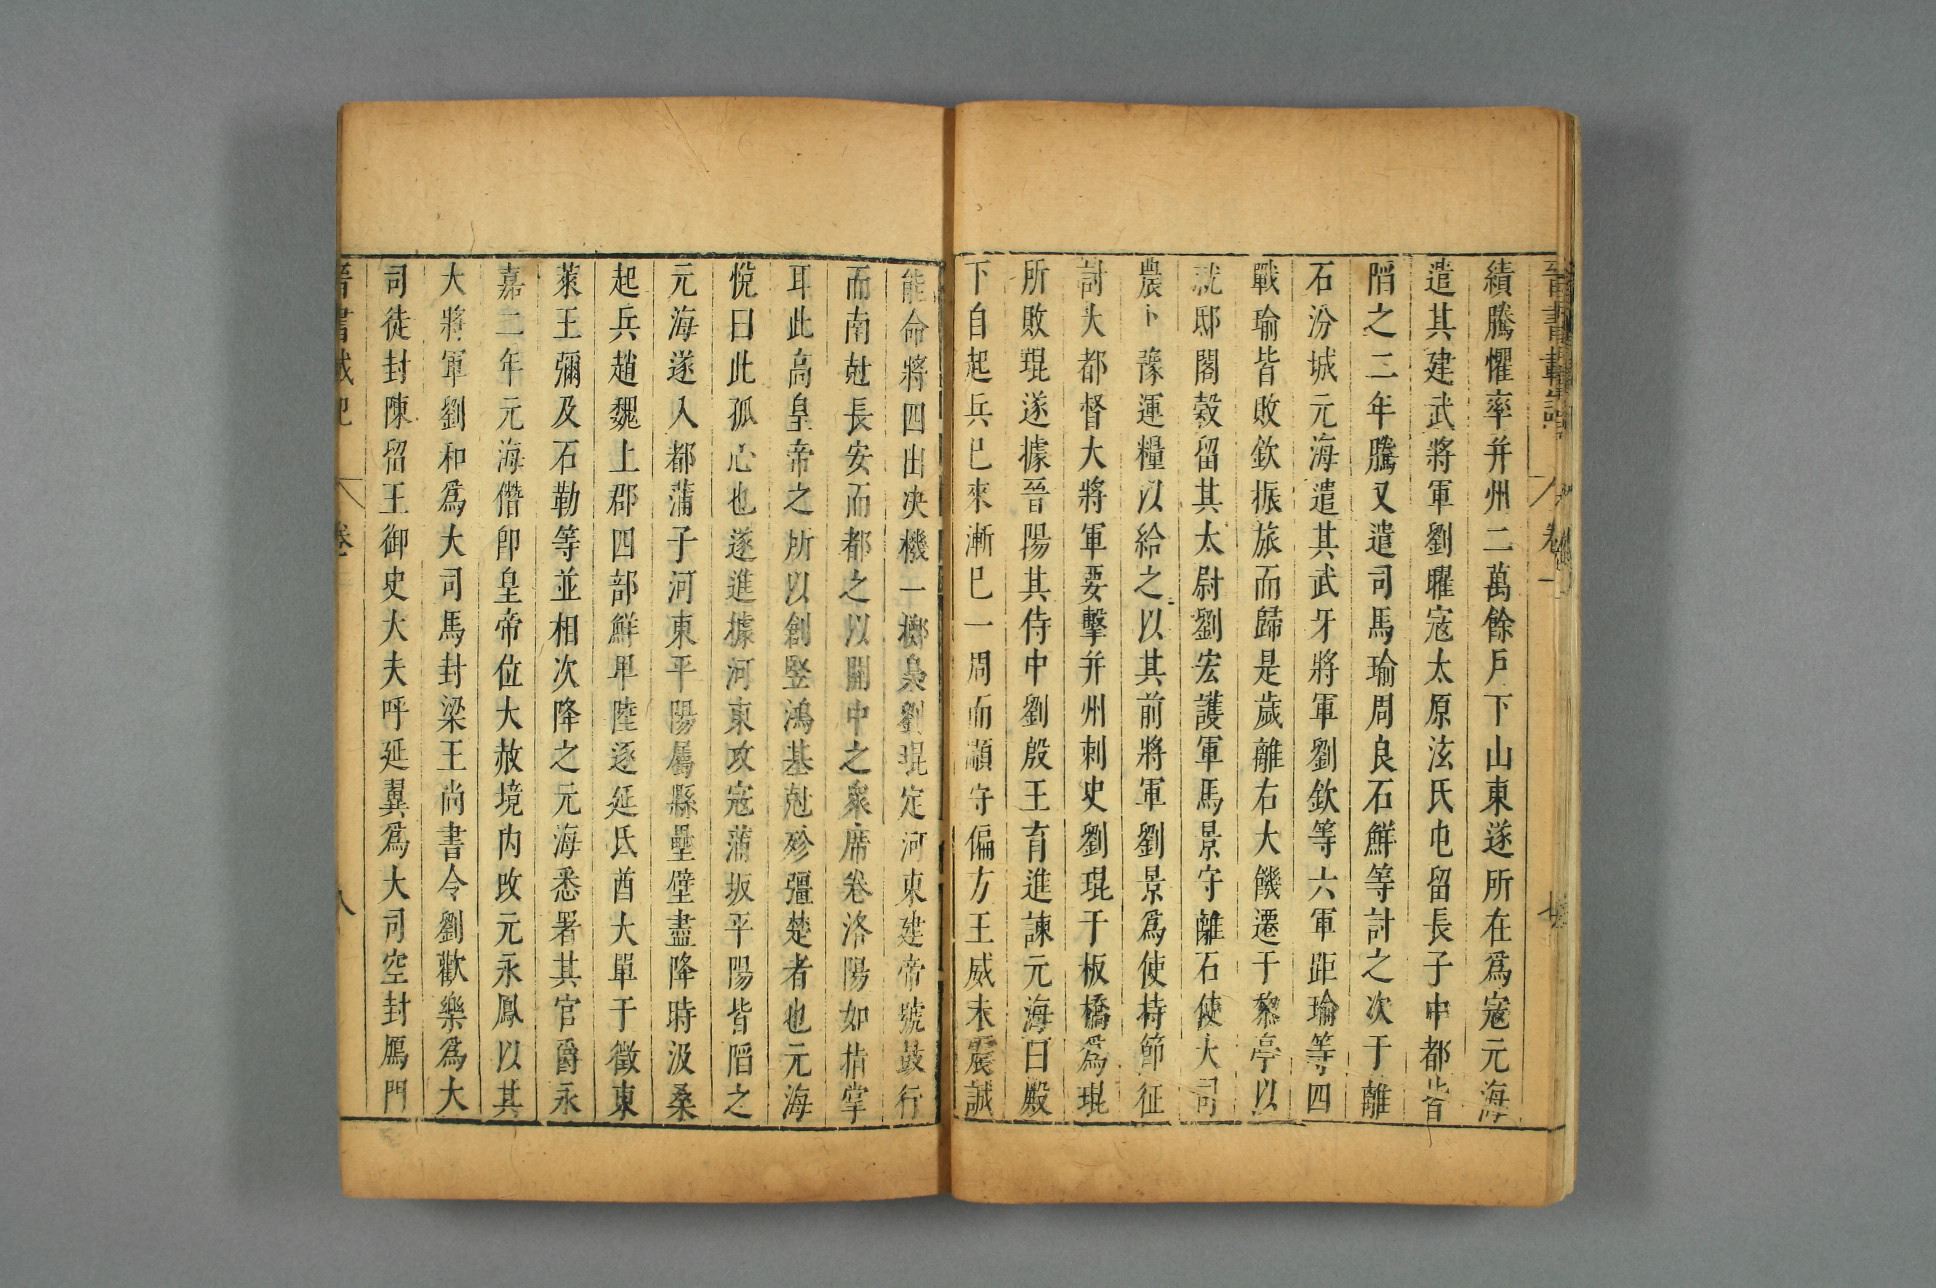 晉書載記 卷一
績騰懼率并州二萬餘戶下山東遂所在爲寇元海
遣其建武將軍劉曜寇太原泫氏屯留長子中都皆
陷之二年騰又遣司馬瑜周良石鮮等討之次于離
石汾城元海遣其武牙將軍劉欽等六軍距瑜等四
戰瑜皆敗欽振旅而歸是歲離右大饑遷于黎亭以
就邸閣穀留其太尉劉宏護軍馬景守離石使大司
農卜豫運糧以給之以其前將軍劉景爲使持節征
討大都督大將軍要擊并州刺史劉琨于板橋爲琨
所敗琨遂據晉陽其侍中劉殷王育進諫元海曰殿
下自起兵已來漸已一周而顓守偏方王威未震誠
能命將四出决機一擲梟劉琨定河東建帝號鼓行
而南尅長安而都之以關中之衆席卷洛陽如指掌
耳此高皇帝之所以創竪鴻基尅殄彊楚者也元海
悅曰此孤心也遂進據河東攻寇蒲坂平陽皆陷之
元海遂入都蒲子河東平陽屬縣壘壁盡降時汲桑
起兵趙魏上郡四部鮮卑陸逐延氐酋大單于徵東
萊王彌及石勒等並相次降之元海悉署其官爵永
嘉二年元海僭卽皇帝位大赦境內改元永鳳以其
大將軍劉和爲大司馬封梁王尚書令劉歡樂爲大
司徒封陳留王御史大夫呼延翼爲大司空封鴈門
晉書載記 卷 八